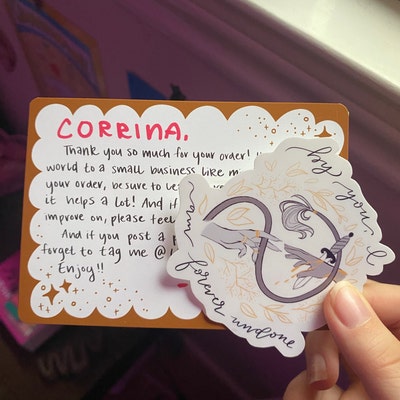 CORRINA,
Thank you so much for your order!
world to a small business like m
your order, be sure to le
it helps a lot! And if
improve on, please feel
And if you post a
forget to tag me @
Enjoy!!
by you I
am forever undone